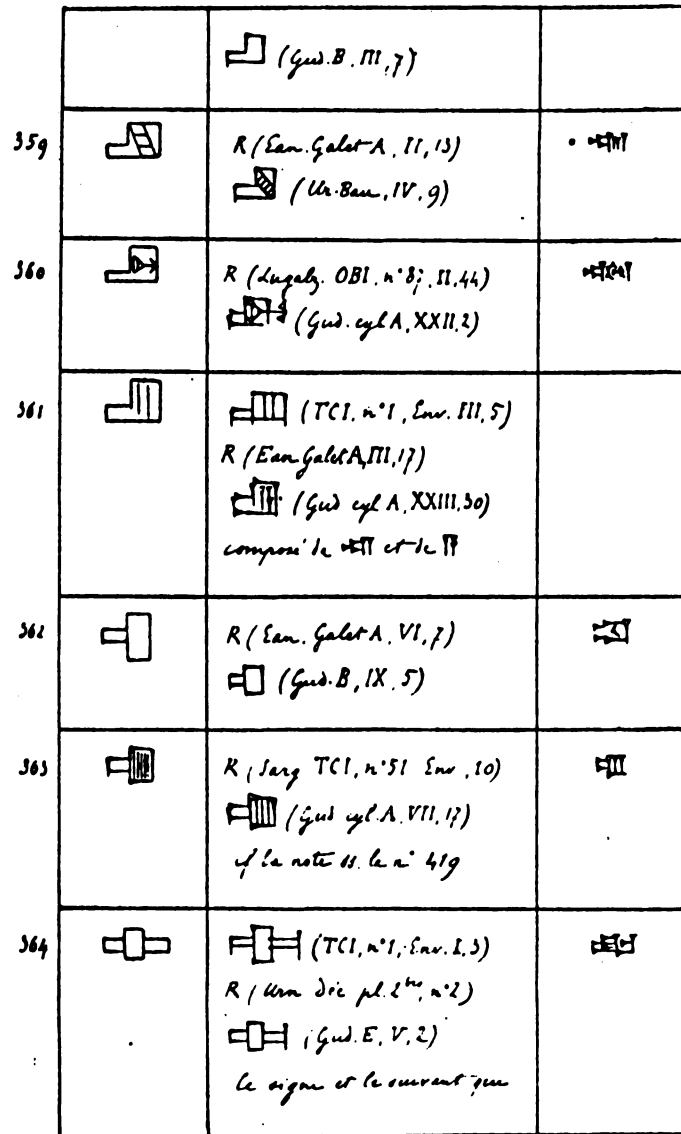 (Gud. B. III, 7)
359 R (Ean. Galet A, II, 13)
(Ur. Bau, IV, 9)
360 R (Lugalz. OBI. n° 87, II, 44)
(Gud. cyl A, XXII, 2)
361 (TCI, n° 1, Env. III, 5)
R (Ean Galet A, III, 17)
(Gud cyl A, XXIII, 30)
composé de 𒆍 et de 𒀀
362 R (Ean. Galet A, VI, 7)
(Gud. B, IX, 5)
363 R (Sarg TCI, n° 51 Env, 10)
(Gud cyl. A. VII, 17)
cf la note ss. le n° 419
364 (TCI, n° 1, Env. I, 3)
R (Urn déc pl. 2 bis, n° 2)
(Gud. E, V, 2)
Ce signe et le suivant que